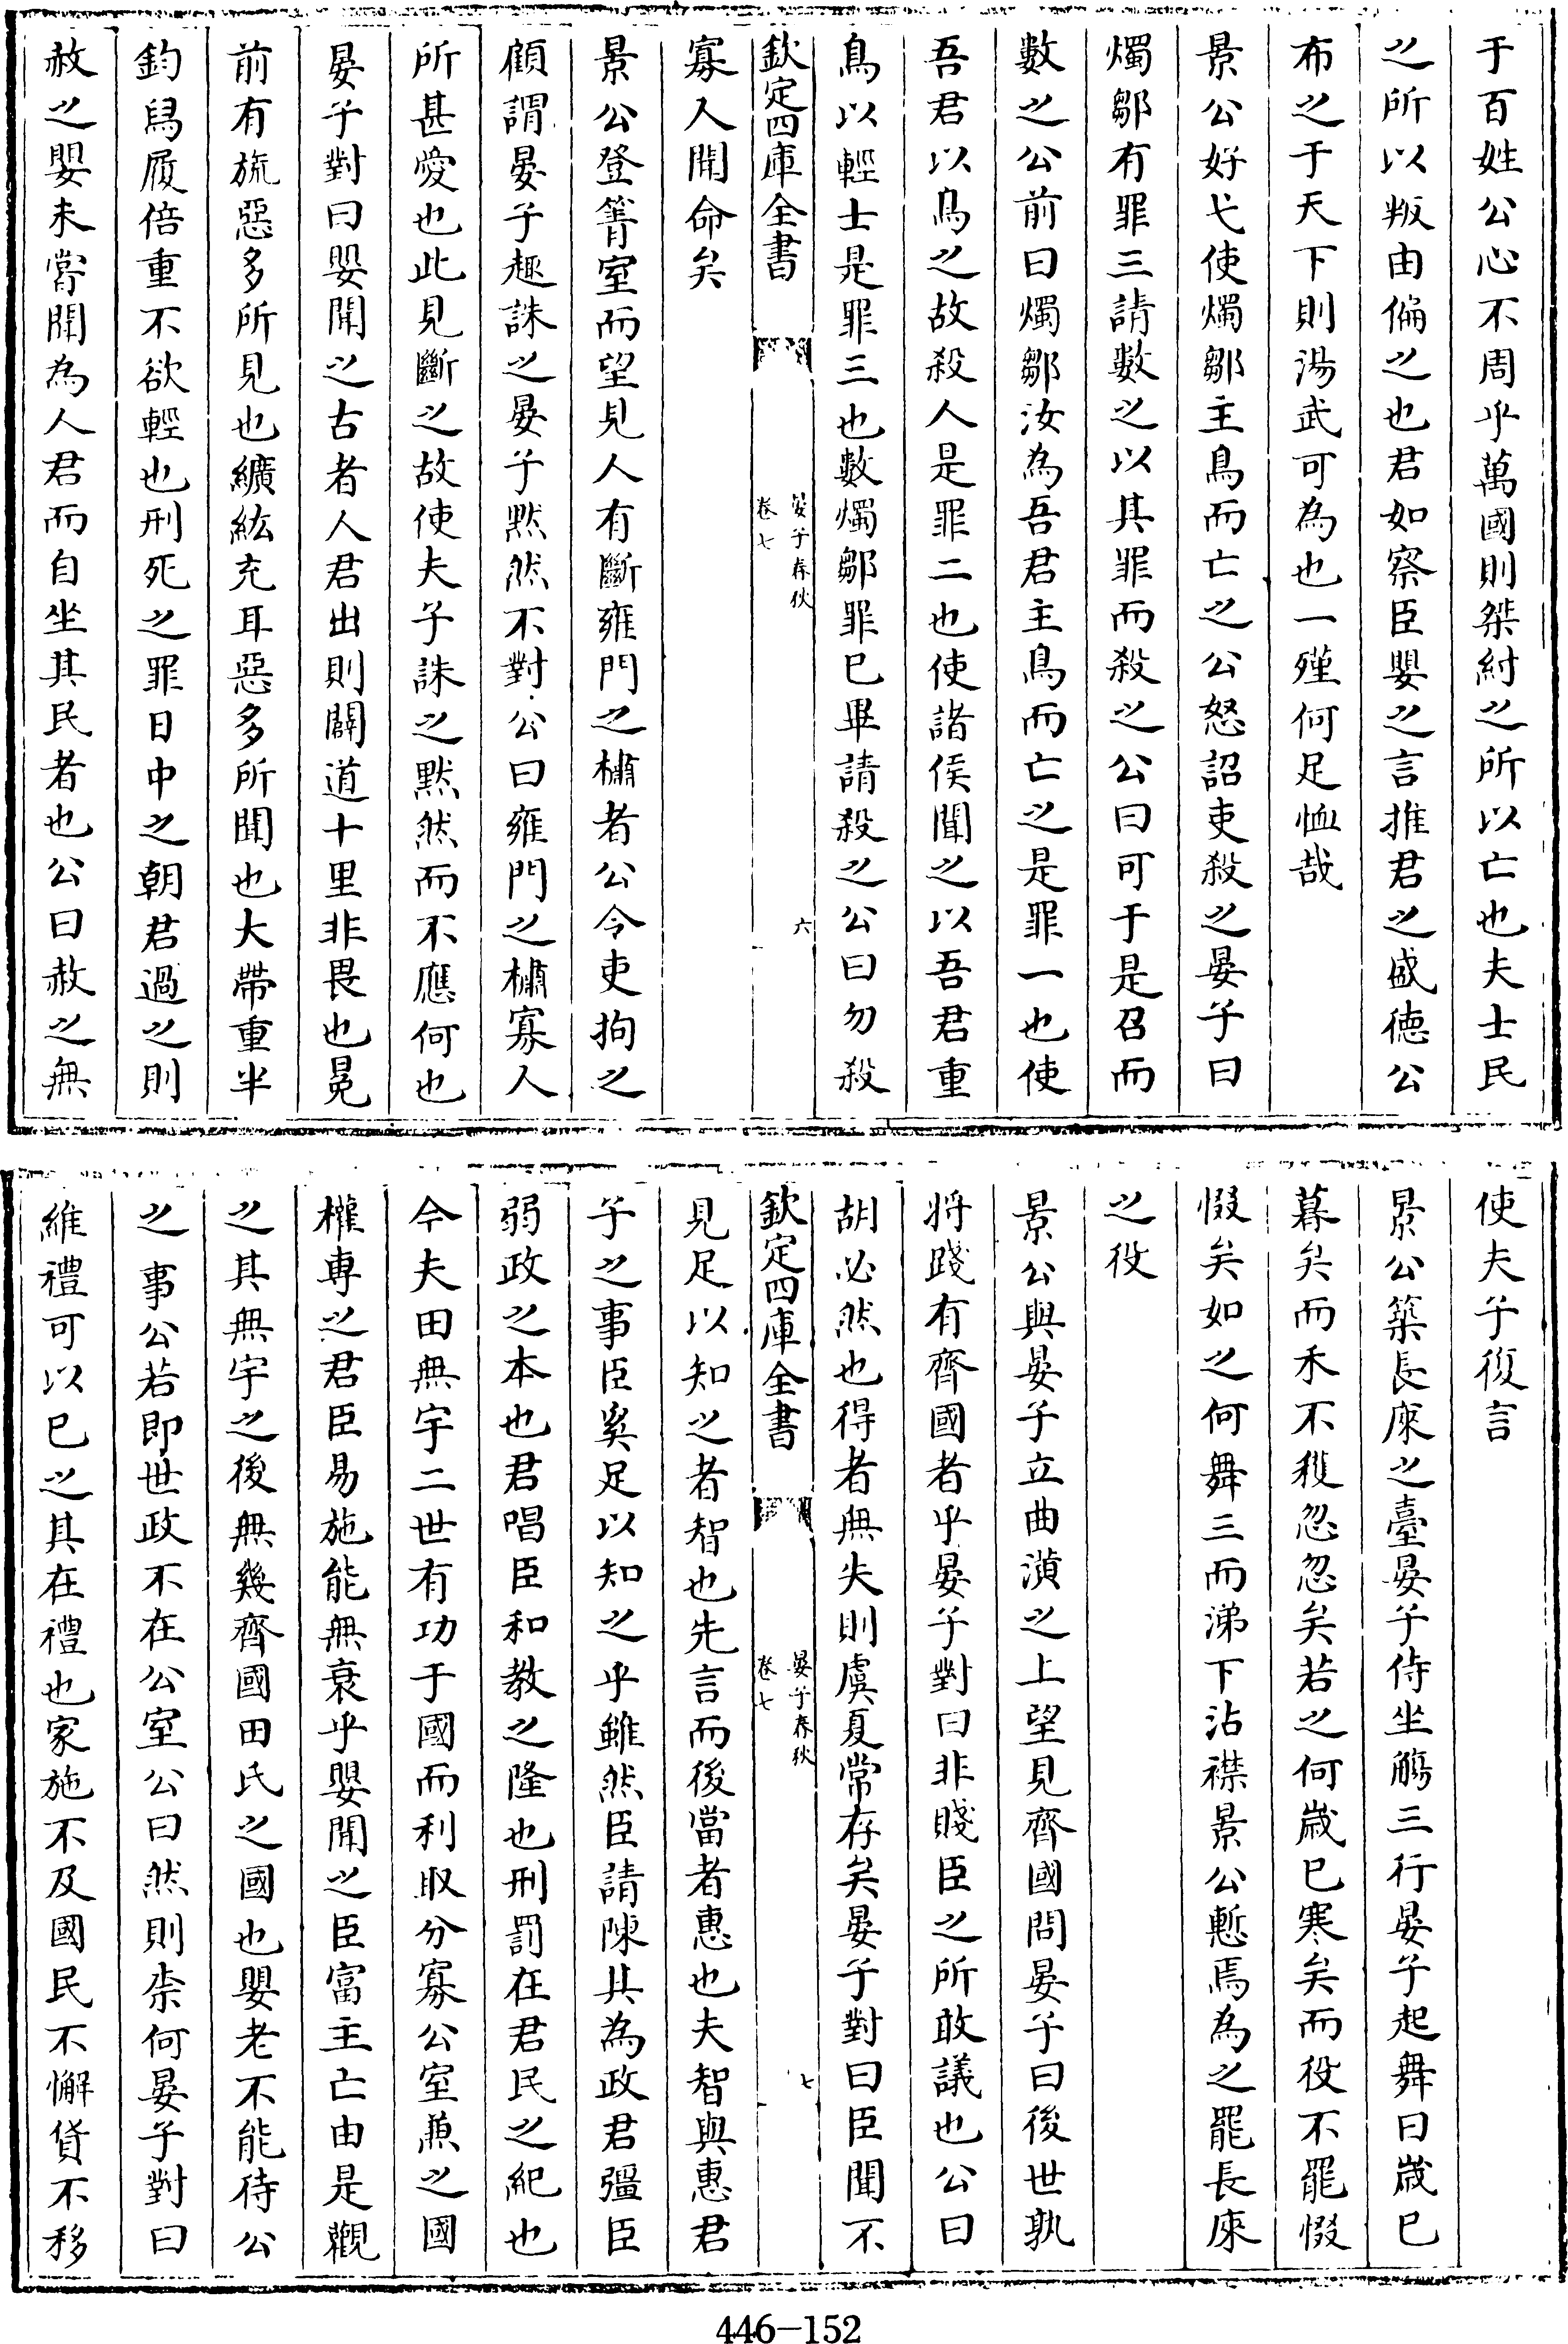 于百姓公心不周乎萬國則桀紂之所以亡也夫士民
之所以叛由偏之也君如察臣嬰之言推君之盛徳公
布之于天下則湯武可為也一殣何足恤哉
景公好弋使燭鄒主鳥而亡之公怒詔吏殺之晏子曰
燭鄒有罪三請數之以其罪而殺之公曰可于是召而
數之公前曰燭鄒汝為吾君主鳥而亡之是罪一也使
吾君以鳥之故殺人是罪二也使諸侯聞之以吾君重
鳥以輕士是罪三也數燭鄒罪已畢請殺之公曰勿殺
欽定四庫全書
晏子春秋
卷七
六
寡人聞命矣
景公登箐室而望見人有斷雍門之橚者公令吏拘之
顧謂晏子趣誅之晏子黙然不對公曰雍門之橚寡人
所甚愛也此見斷之故使夫子誅之黙然而不應何也
晏子對曰嬰聞之古者人君出則闢道十里非畏也冕
前有旒惡多所見也纊紘充耳惡多所聞也大帶重半
鈞舄履倍重不欲輕也刑死之罪日中之朝君過之則
赦之嬰未嘗聞為人君而自坐其民者也公曰赦之無
使夫子復言
景公築長庲之臺晏子侍坐觴三行晏子起舞曰歳已
暮矣而禾不穫忽忽矣若之何歳已寒矣而役不罷惙
惙矣如之何舞三而涕下沾襟景公慙焉為之罷長庲
之役
景公與晏子立曲潢之上望見齊國問晏子曰後世孰
將踐有齊國者乎晏子對曰非賤臣之所敢議也公曰
胡必然也得者無失則虞夏常存矣晏子對曰臣聞不
欽定四庫全書
晏子春秋
卷七
七
見足以知之者智也先言而後當者惠也夫智與惠君
子之事臣奚足以知之乎雖然臣請陳其為政君彊臣
弱政之本也君唱臣和教之隆也刑罰在君民之紀也
今夫田無宇二世有功于國而利取分寡公室兼之國
權専之君臣易施能無衰乎嬰聞之臣富主亡由是觀
之其無宇之後無幾齊國田氏之國也嬰老不能待公
之事公若即世政不在公室公曰然則柰何晏子對曰
維禮可以已之其在禮也家施不及國民不懈貸不移
446-152